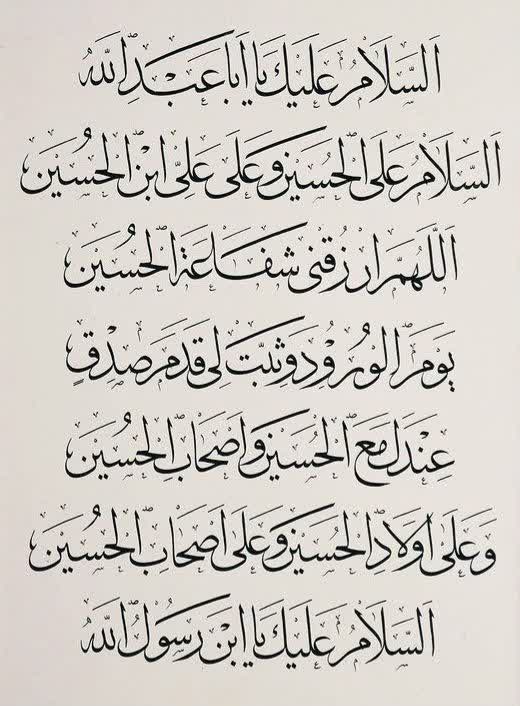 اَلسَّلَامُ عَلَيْكَ يَا اَبَا عَبْدِ اللّٰه
اَلسَّلَامُ عَلَى الْحُسَيْنِ وَعَلٰى عَلِيِّ ابْنِ الْحُسَيْن
اَللّٰهُمَّ ارْزُقْنِي شَفَاعَةَ الْحُسَيْن
يَوْمَ الْوُرُوْدِ وَثَبِّتْ لِي قَدَمَ صِدْقٍ
عِنْدَكَ مَعَ الْحُسَيْنِ وَاَصْحَابِ الْحُسَيْن
وَعَلٰى اَوْلَادِ الْحُسَيْنِ وَعَلٰى اَصْحَابِ الْحُسَيْن
اَلسَّلَامُ عَلَيْكَ يَا ابْنَ رَسُوْلِ اللّٰه